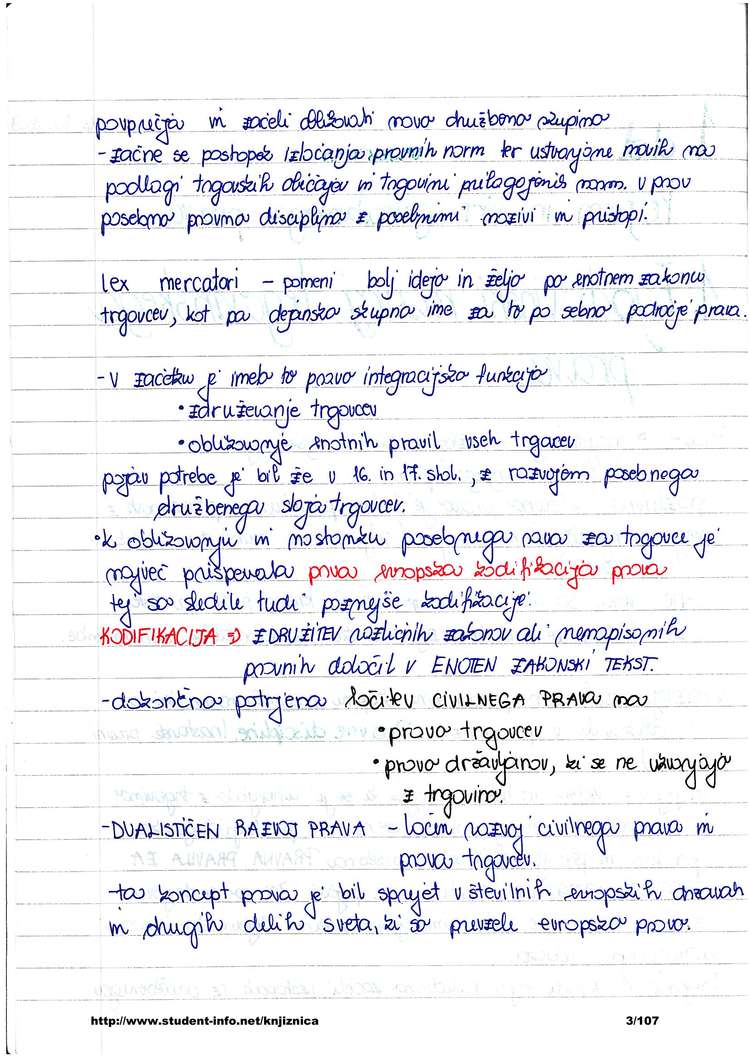 povprečja in začeli oblikovati nova družbena skupina
- začne se postopek izločanja pravnih norm ter ustvarjanje novih na
podlagi trgovskih običajev in trgovini prilagojenih norm. v prav
posebna pravna disciplina z posebnimi nazivi in pristopi.
lex mercatori - pomeni bolj idejo in željo po enotnem zakonu
trgovcev, kot pa dejansko skupno ime za to po sebno področje prava.
- V začetku je imelo to pravo integracijsko funkcijo
• združevanje trgovcev
• oblikovanje enotnih pravil vseh trgacev
pojav potrebe je bil že v 16. in 17. stol., z razvojem posebnega
družbenega sloja trgovcev.
• k oblikovanju in nastanku posebnega prava za trgovce je
največ prispevala prva evropska kodifikacija prava
tej so sledile tudi poznejše kodifikacije.
KODIFIKACIJA => ZDRUŽITEV različnih zakonov ali nenapisanih
pravnih določil v ENOTEN ZAKONSKI TEKST.
- dokončna potrjena ločitev CIVILNEGA PRAVA na
• pravo trgovcev
• pravo državljanov, ki se ne ukvarjajo
z trgovino.
- DUALISTIČEN RAZVOJ PRAVA - ločen razvoj civilnega prava in
prava trgovcev.
- ta koncept prava je bil sprejet v številnih evropskih državah
in drugih delih sveta, ki so prevzele evropsko pravo.
http://www.student-info.net/knjiznica 3/107